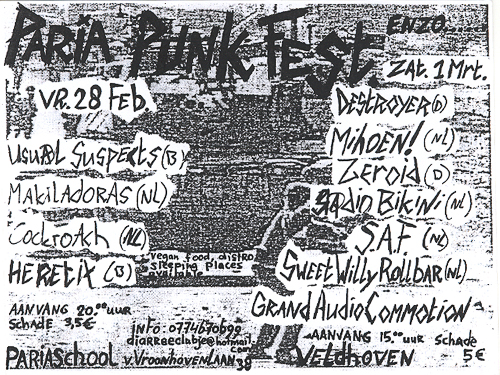 PARIA PUNK FEST
ENZO......
VR. 28 FEB.
ZAT. 1 MRT.
USUAL SUSPECTS (B)
MAKILADORAS (NL)
COCKROACH (NL)
HERETIX (B)
DESTROYER (D)
MIHOEN! (NL)
ZEROID (D)
RADIO BIKINI (NL)
S.A.F. (NL)
SWEET WILLY ROLLBAR (NL)
GRAND AUDIO COMMOTION
vegan food, distro
sleeping places
available
AANVANG 20.00 uur
SCHADE 3,5€
info: 0774670699
diarreeclubje@hotmail.
com
AANVANG 15.00 uur SCHADE
5€
PARIASCHOOL v. VROONHOVENLAAN 38 VELDHOVEN